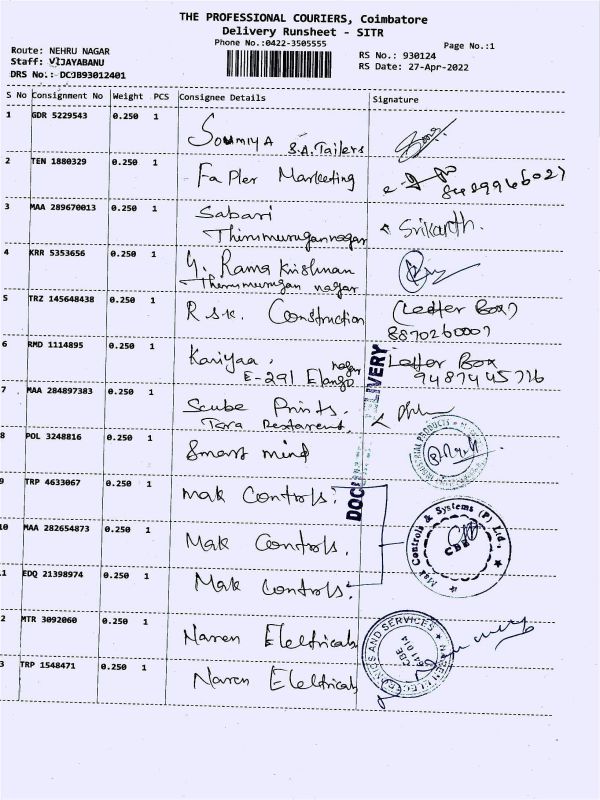 THE PROFESSIONAL COURIERS, Coimbatore
Delivery Runsheet - SITR
Phone No.:0422-3505555
Page No.:1
Route: NEHRU NAGAR
RS No.: 930124
Staff: VIJAYABANU
RS Date: 27-Apr-2022
DRS No.: DCJB93012401
S No Consignment No Weight PCS Consignee Details Signature
1 GDR 5229543 0.250 1 Soumiya S.A.Tailers
2 TEN 1880329 0.250 1 Fa Pler Marketing
3 MAA 289670013 0.250 1 Sabari Srikanth.
Thirumurugannagar
4 KRR 5353656 0.250 1 Y. Rama Krishnan
Thirumurugan nagar
5 TRZ 145648438 0.250 1 R.S.K. Construction (Letter Box)
8870260007
6 RMD 1114895 0.250 1 Kariyaa, Letter Box
E-291 Elango nagar 9487445776
7 MAA 284897383 0.250 1 Scube Prints.
Tara Restarent.
8 POL 3248816 0.250 1 Smart mind
9 TRP 4633067 0.250 1 Mak Controls.
10 MAA 282654873 0.250 1 Mak Controls.
Mak Controls & Systems (P) Ltd.,
CBE
1 EDQ 21398974 0.250 1 Mak Controls.
2 MTR 3092060 0.250 1 Naren Eleltricals
3 TRP 1548471 0.250 1 Naren Eleltricals
AND SERVICES
CBE
641 014